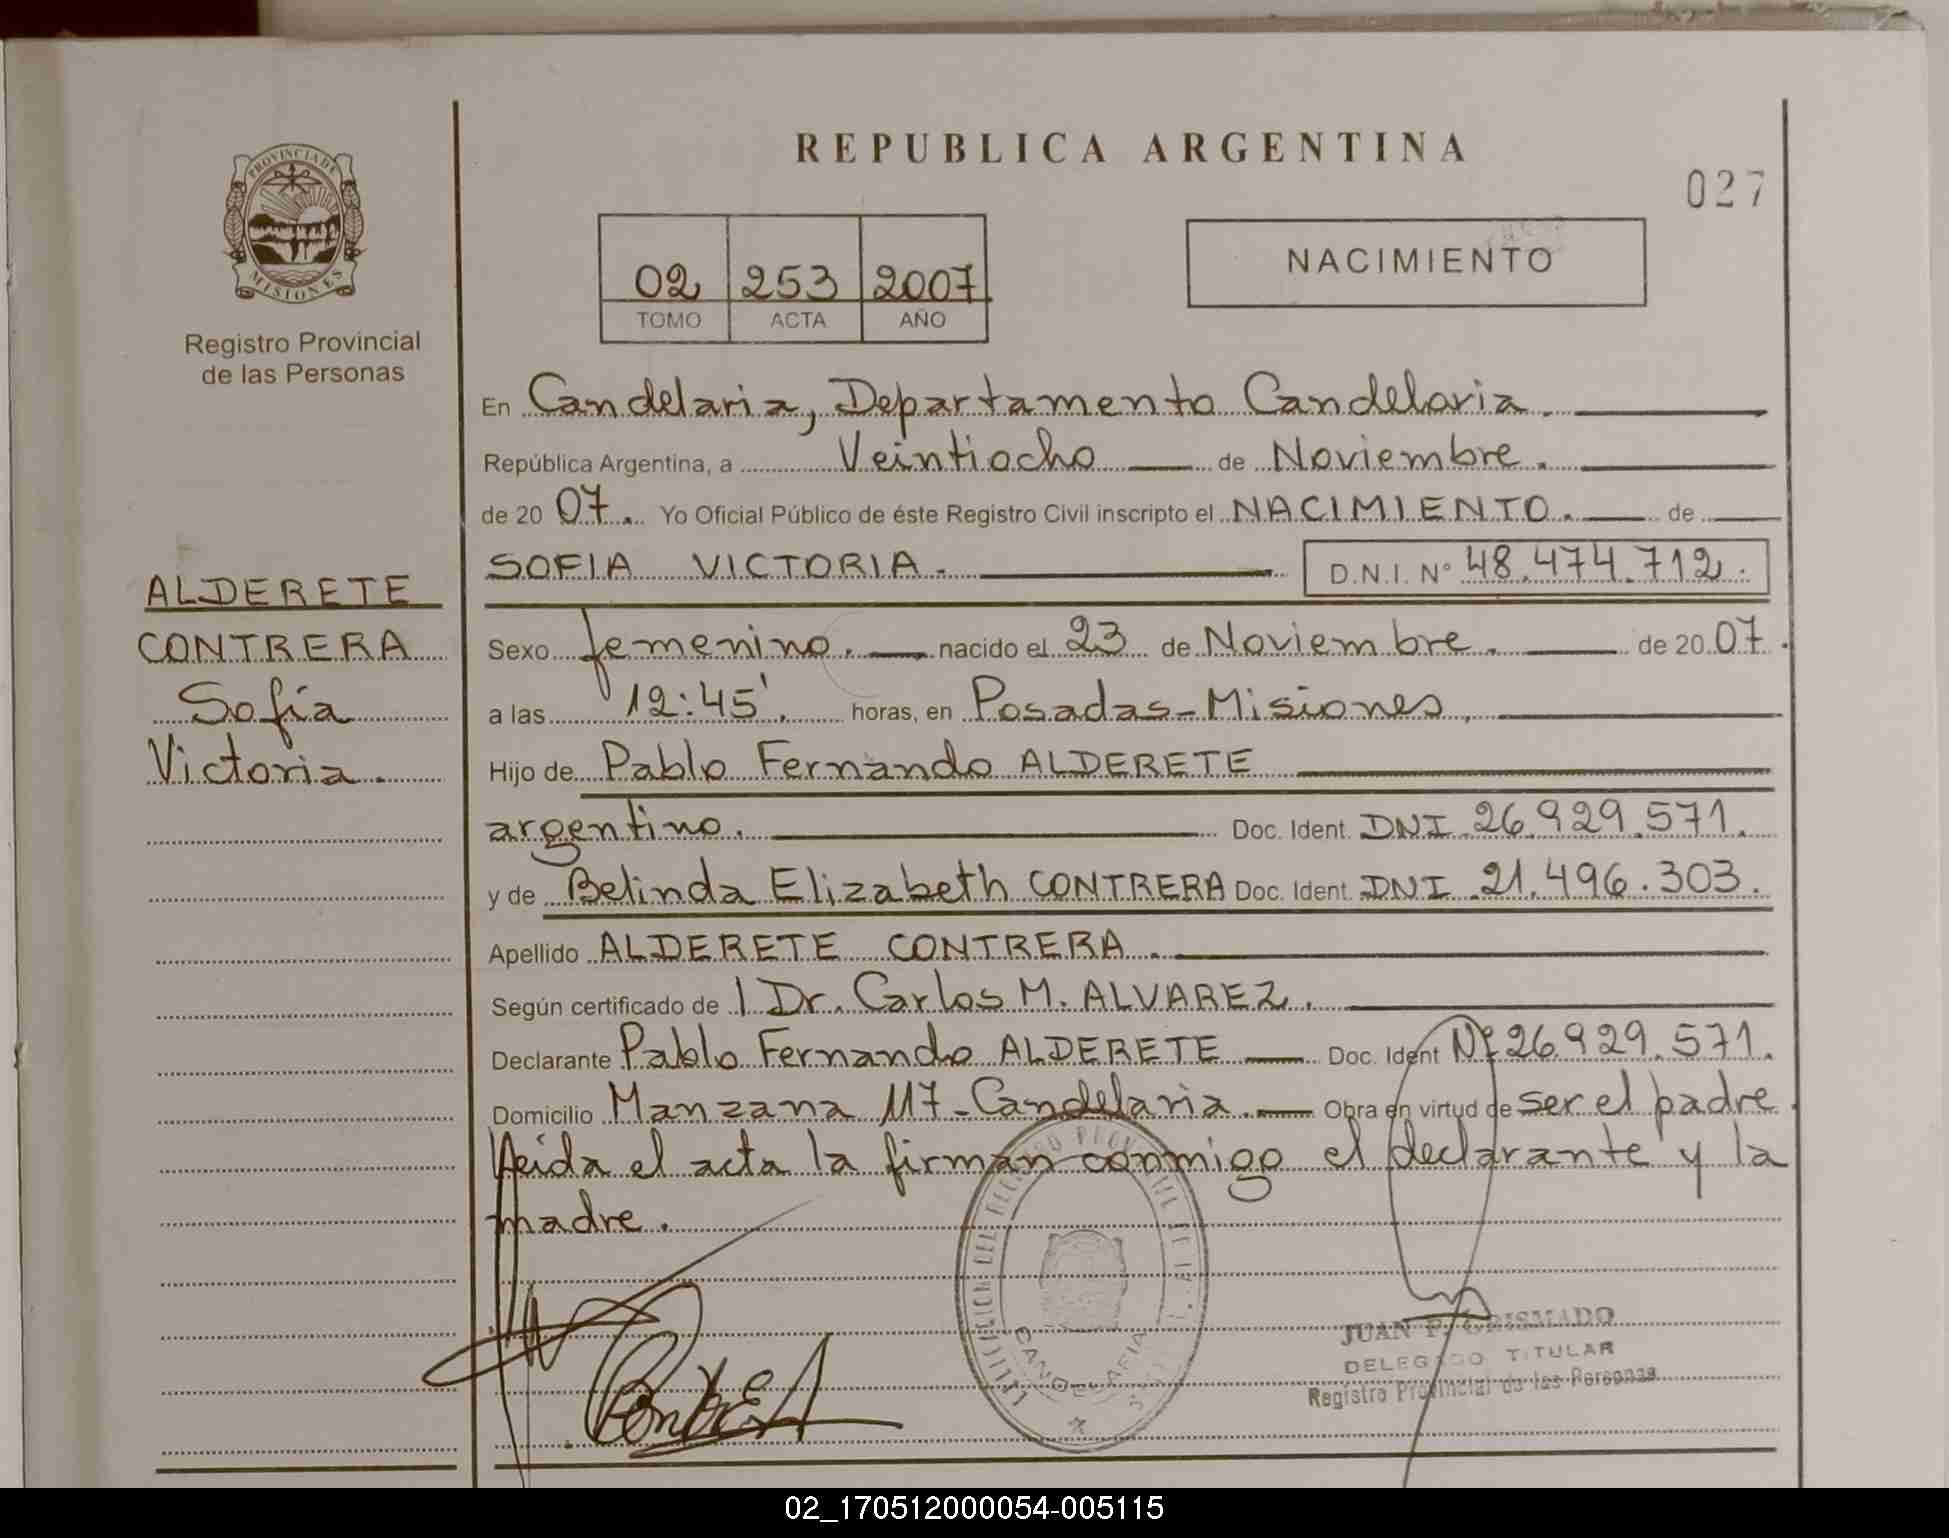 REPUBLICA ARGENTINA
027
PROVINCIA DE
MISIONES
Registro Provincial
de las Personas
02 253 2007
TOMO ACTA AÑO
NACIMIENTO
En Candelaria, Departamento Candelaria.
República Argentina, a Veintiocho de Noviembre.
de 20 07. Yo Oficial Público de éste Registro Civil inscripto el NACIMIENTO. de
SOFIA VICTORIA. D.N.I. Nº 48.474.712.
ALDERETE
CONTRERA
Sofía
Victoria.
Sexo femenino. nacido el 23 de Noviembre. de 20 07.
a las 12:45'. horas, en Posadas-Misiones.
Hijo de Pablo Fernando ALDERETE
argentino. Doc. Ident. DNI 26.929.571.
y de Belinda Elizabeth CONTRERA Doc. Ident. DNI 21.496.303.
Apellido ALDERETE CONTRERA.
Según certificado de l Dr. Carlos M. ALVAREZ.
Declarante Pablo Fernando ALDERETE Doc. Ident Nº 26.929.571.
Domicilio Manzana 117-Candelaria. Obra en virtud de ser el padre.
Leída el acta la firman conmigo el declarante y la
madre.
CANDELARIA
JUAN P. GRISMADO
DELEGADO TITULAR
Registro Provincial de las Personas
02_170512000054-005115